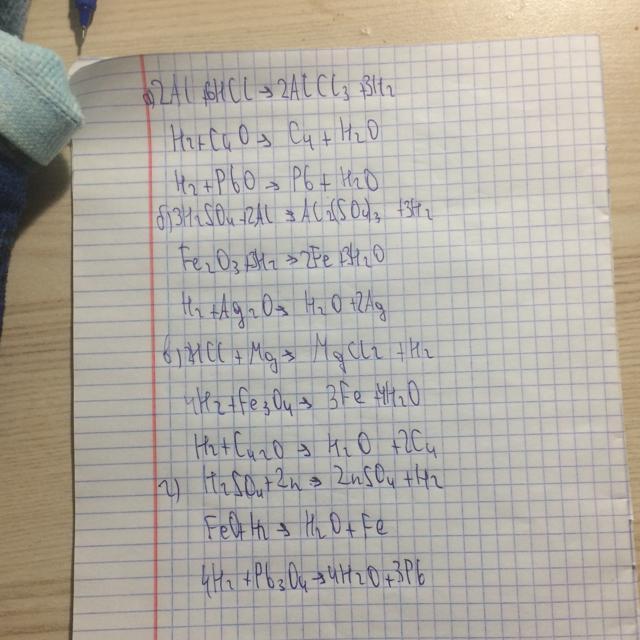 а) 2Al + 6HCl → 2AlCl3 + 3H2
H2 + CuO → Cu + H2O
H2 + PbO → Pb + H2O
б) 3H2SO4 + 2Al → Al2(SO4)3 + 3H2
Fe2O3 + 3H2 → 2Fe + 3H2O
H2 + Ag2O → H2O + 2Ag
в) 2HCl + Mg → MgCl2 + H2
4H2 + Fe3O4 → 3Fe + 4H2O
H2 + Cu2O → H2O + 2Cu
г) H2SO4 + Zn → ZnSO4 + H2
FeO + H2 → H2O + Fe
4H2 + Pb3O4 → 4H2O + 3Pb